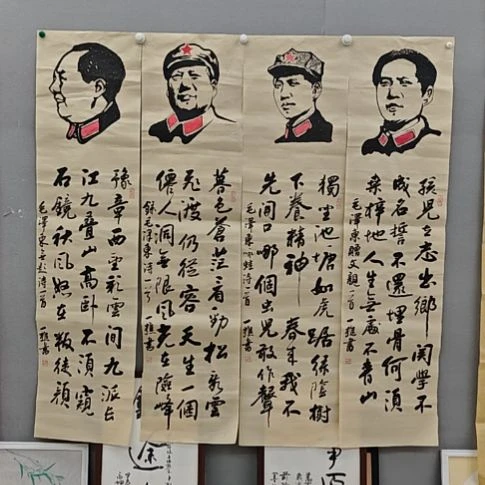 孩兒立志出鄉関學不
成名誓不還埋骨何須
桑梓地人生無處不青山
毛澤東贈父親一首 一樵書
獨坐池塘如虎踞綠陰樹
下養精神春来我不
先開口哪個虫兒敢作聲
毛澤東咏蛙诗一首 一樵書
暮色蒼茫看勁松亂雲
飛渡仍從容天生一個
僊人洞無限風光在險峰
錄毛澤東诗一首 一樵書
豫章西望彩雲間九派長
江九叠山高卧不須窺
石鏡秋風怒在叛徒顏
毛澤東无题诗一首 一樵書